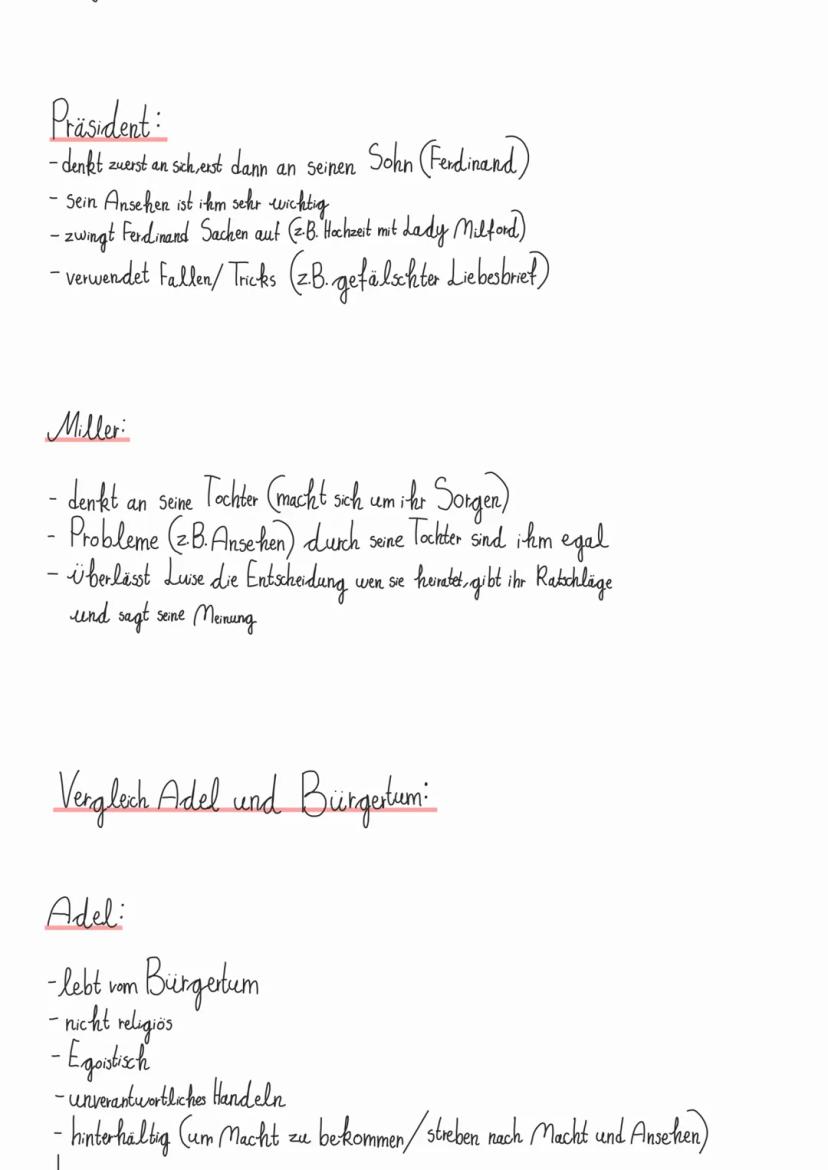 Präsident:
- denkt zuerst an sich, erst dann an seinen Sohn (Ferdinand)
- sein Ansehen ist ihm sehr wichtig
- zwingt Ferdinand Sachen auf (z.B. Hochzeit mit Lady Milford)
- verwendet Fallen/Tricks (z.B. gefälschter Liebesbrief)
Miller:
- denkt an seine Tochter (macht sich um ihr Sorgen)
- Probleme (z.B. Ansehen) durch seine Tochter sind ihm egal
- überlässt Luise die Entscheidung wen sie heiratet, gibt ihr Ratschläge
und sagt seine Meinung
Vergleich Adel und Bürgertum:
Adel:
- lebt vom Bürgertum
- nicht religiös
- Egoistisch
- unverantwortliches Handeln
- hinterhältig (um Macht zu bekommen/streben nach Macht und Ansehen)